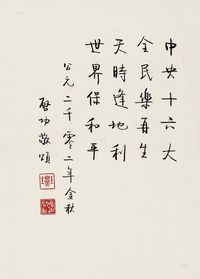 中央十六大
全民樂再生
天時逢地利
世界保和平
公元二千零二年金秋
启功敬頌